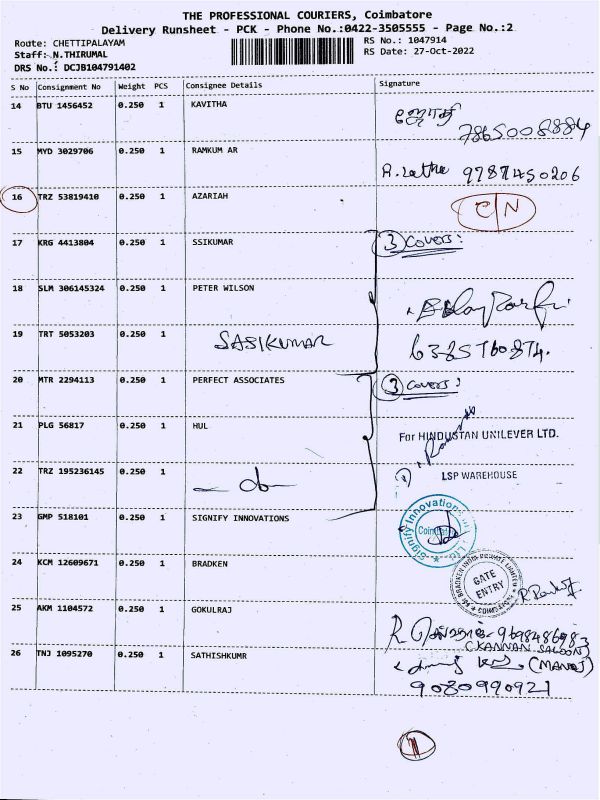 THE PROFESSIONAL COURIERS, Coimbatore
Delivery Runsheet - PCK - Phone No.:0422-3505555 - Page No.:2
Route: CHETTIPALAYAM
RS No.: 1047914
Staff: N.THIRUMAL
RS Date: 27-Oct-2022
DRS No.: DCJB104791402
S No Consignment No Weight PCS Consignee Details Signature
14 BTU 1456452 0.250 1 KAVITHA
ஜோதி
7865008884
15 MYD 3029706 0.250 1 RAMKUM AR
R.Latha 9787450206
16 TRZ 53819410 0.250 1 AZARIAH C/N
17 KRG 4413804 0.250 1 SSIKUMAR 3 COVERS:
18 SLM 306145324 0.250 1 PETER WILSON
19 TRT 5053203 0.250 1 SASIKUMAR 6385760874.
20 MTR 2294113 0.250 1 PERFECT ASSOCIATES 3 COVERS:
21 PLG 56817 0.250 1 HUL
For HINDUSTAN UNILEVER LTD.
22 TRZ 195236145 0.250 1 — do —
LSP WAREHOUSE
23 GMP 518101 0.250 1 SIGNIFY INNOVATIONS
Signify Innovations
24 KCM 12609671 0.250 1 BRADKEN
GATE
ENTRY
25 AKM 1104572 0.250 1 GOKULRAJ
9698486983
(KANNAN SALOON)
26 TNJ 1095270 0.250 1 SATHISHKUMR
(MANOJ)
9080990921